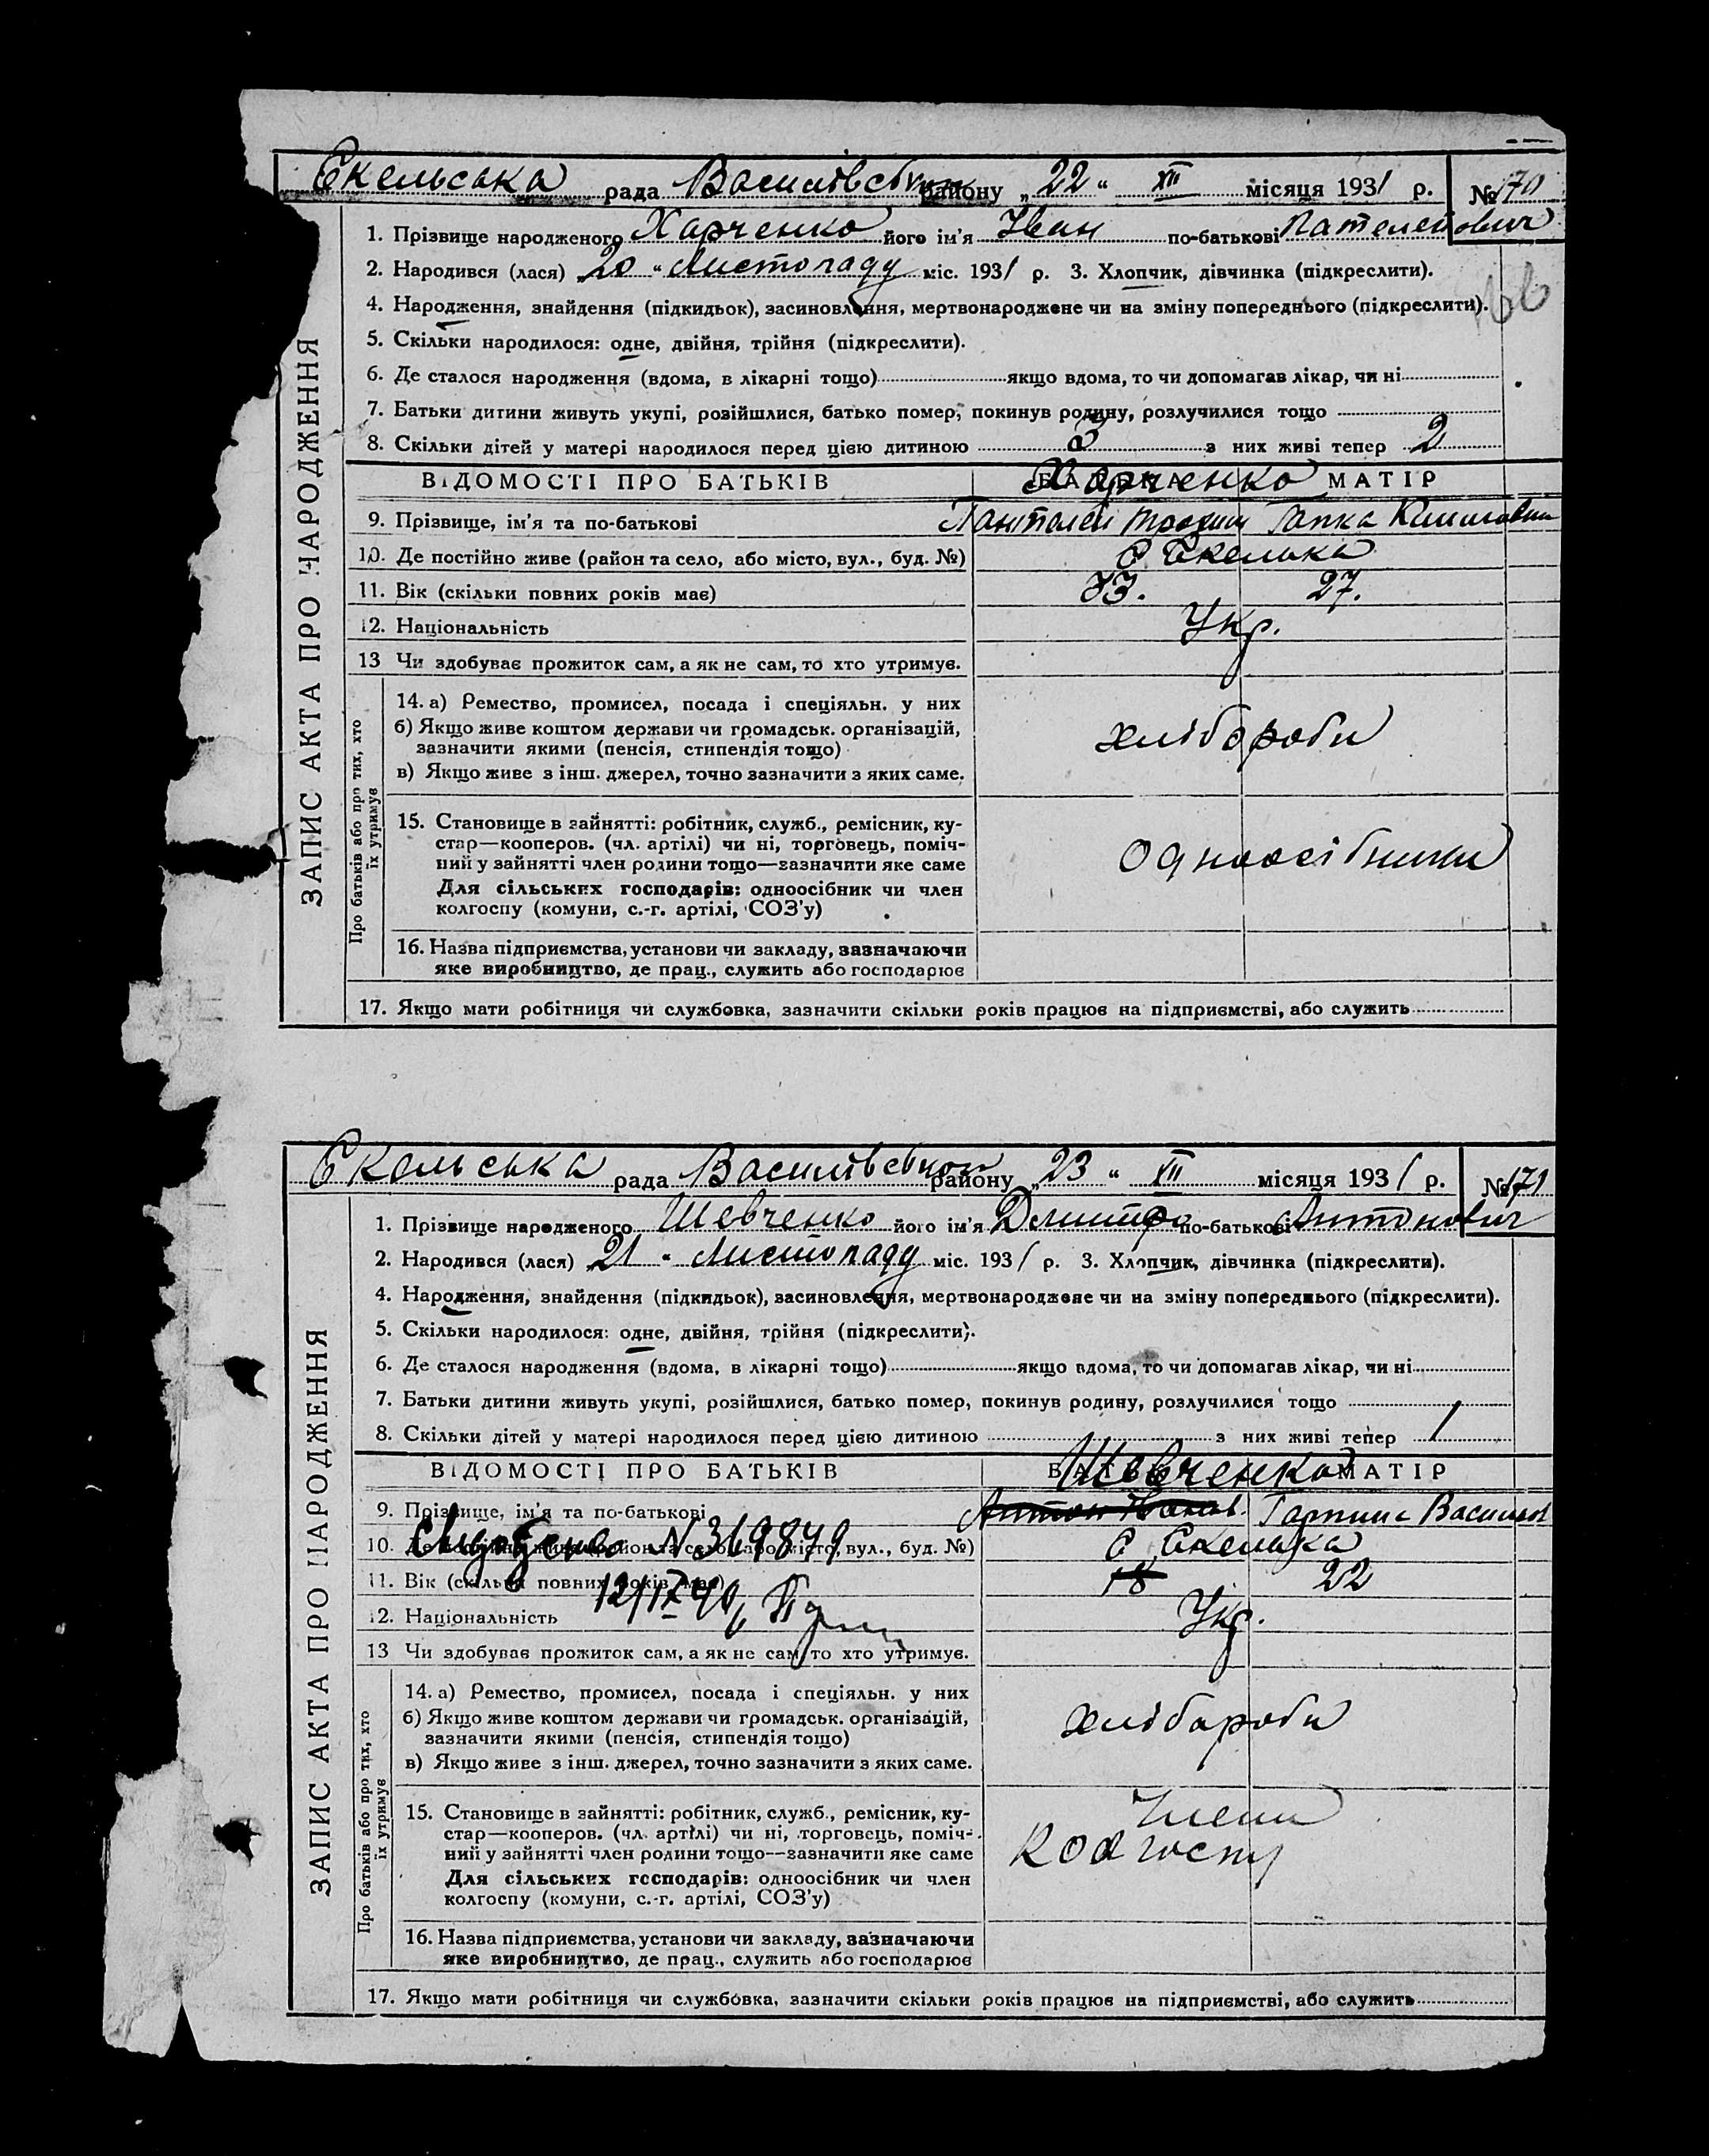 Скельська рада Василівськ району „22“ XII місяця 1931 р. № 170
1. Прізвище народженого Харченко його ім'я Іван по-батькові Пателейович
2. Народився (лася) „20“ Листопаду міс. 1931 р. 3. Хлопчик, дівчинка (підкреслити).
4. Народження, знайдення (підкидьок), засиновлення, мертвонароджене чи на зміну попереднього (підкреслити).
5. Скільки народилося: одне, двійня, трійня (підкреслити).
6. Де сталося народження (вдома, в лікарні тощо) якщо вдома, то чи допомагав лікар, чи ні
7. Батьки дитини живуть укупі, розійшлися, батько помер, покинув родину, розлучилися тощо
8. Скільки дітей у матері народилося перед цією дитиною 3 з них живі тепер 2
ВІДОМОСТІ ПРО БАТЬКІВ БАТЬКА МАТІР
Харченко
9. Прізвище, ім'я та по-батькові Пантелей Гапка
10. Де постійно живе (район та село, або місто, вул., буд. №) С Скелька
11. Вік (скільки повних років має) 33. 27.
12. Національність Укр.
13 Чи здобуває прожиток сам, а як не сам, то хто утримує.
Про батьків або про тих, хто їх утримує
14. а) Ремество, промисел, посада і спеціяльн. у них
б) Якщо живе коштом держави чи громадськ. організацій,
зазначити якими (пенсія, стипендія тощо)
хлібороби
в) Якщо живе з інш. джерел, точно зазначити з яких саме.
15. Становище в зайнятті: робітник, служб., ремісник, ку-
стар—кооперов. (чл. артілі) чи ні, торговець, поміч-
ний у зайнятті член родини тощо—зазначити яке саме
одноосібники
Для сільських господарів: одноосібник чи член
колгоспу (комуни, с.-г. артілі, СОЗ'у)
16. Назва підприємства, установи чи закладу, зазначаючи
яке виробництво, де прац., служить або господарює
17. Якщо мати робітниця чи службовка, зазначити скільки років працює на підприємстві, або служить
ЗАПИС АКТА ПРО НАРОДЖЕННЯ
Скельська рада Василівськ району „23“ XII місяця 1931 р. № 171
1. Прізвище народженого Шевченко його ім'я Дмитро по-батькові Антонович
2. Народився (лася) „21“ Листопаду міс. 1931 р. 3. Хлопчик, дівчинка (підкреслити).
4. Народження, знайдення (підкидьок), засиновлення, мертвонароджене чи на зміну попереднього (підкреслити).
5. Скільки народилося: одне, двійня, трійня (підкреслити).
6. Де сталося народження (вдома, в лікарні тощо) якщо вдома, то чи допомагав лікар, чи ні
7. Батьки дитини живуть укупі, розійшлися, батько помер, покинув родину, розлучилися тощо
8. Скільки дітей у матері народилося перед цією дитиною з них живі тепер 1
ВІДОМОСТІ ПРО БАТЬКІВ БАТЬКА МАТІР
Шевченко
9. Прізвище, ім'я та по-батькові Антон Горпина Василів
N 319849
10. Де постійно живе (район та село, або місто, вул., буд. №) С Скелька
11. Вік (скільки повних років має) 18 22
12/IX 40
12. Національність Укр.
13 Чи здобуває прожиток сам, а як не сам, то хто утримує.
Про батьків або про тих, хто їх утримує
14. а) Ремество, промисел, посада і спеціяльн. у них
б) Якщо живе коштом держави чи громадськ. організацій,
зазначити якими (пенсія, стипендія тощо)
хлібороби
в) Якщо живе з інш. джерел, точно зазначити з яких саме.
15. Становище в зайнятті: робітник, служб., ремісник, ку-
стар—кооперов. (чл. артілі) чи ні, торговець, поміч-
ний у зайнятті член родини тощо—зазначити яке саме
члени
колгоспу
Для сільських господарів: одноосібник чи член
колгоспу (комуни, с.-г. артілі, СОЗ'у)
16. Назва підприємства, установи чи закладу, зазначаючи
яке виробництво, де прац., служить або господарює
17. Якщо мати робітниця чи службовка, зазначити скільки років працює на підприємстві, або служить
ЗАПИС АКТА ПРО НАРОДЖЕННЯ